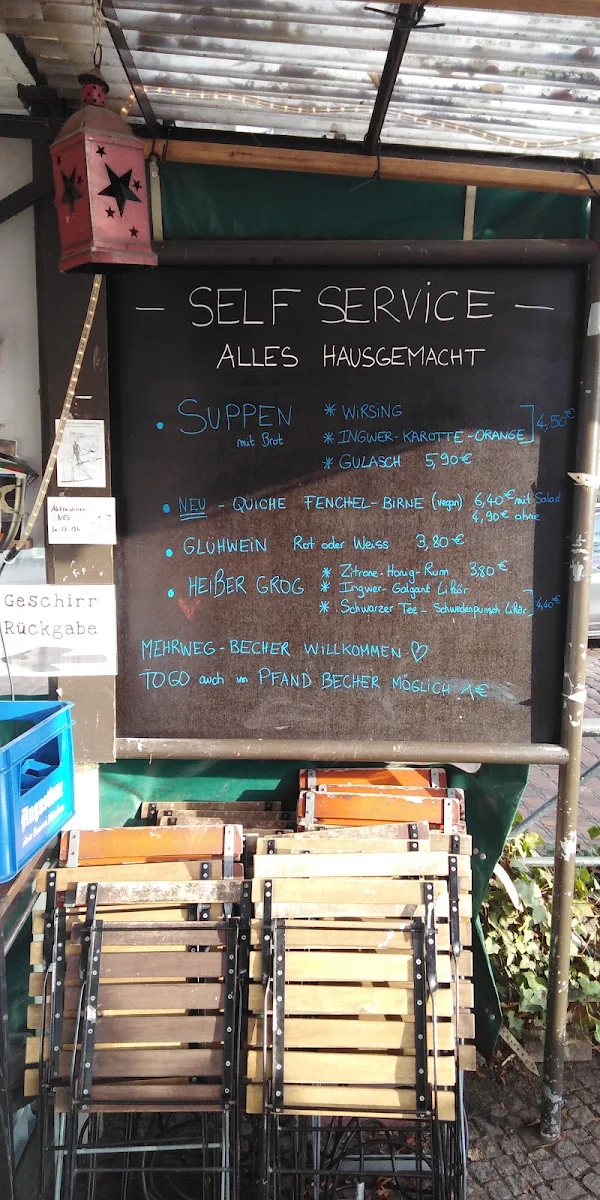 — SELF SERVICE —
ALLES HAUSGEMACHT
• SUPPEN * WIRSING
mit Brot * INGWER-KAROTTE-ORANGE ] 4,50€
* GULASCH 5,90€
• NEU - QUICHE FENCHEL-BIRNE (vegan) 6,40€ mit Salad
4,90€ ohne
• GLÜHWEIN Rot oder Weiss 3,80€
• HEIßER GROG * Zitrone-Honig-Rum 3,80€
* Ingwer-Galgant Likör
* Schwarzer Tee - Schwedenpunsch Likör ]
MEHRWEG-BECHER WILLKOMMEN ♡
TO GO auch im PFAND BECHER MÖGLICH 1€
NEU
Geschirr
Rückgabe
Augustiner